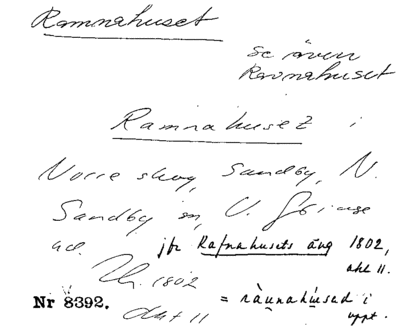 Ramnahuset
se även
Ravnahuset
Ramnahuset i
Norre skog, Sandby, N.
Sandby sn, V. Göinge
hd. jfr Rafnahusets äng 1802,
akt 11.
1802
Nr 8392. = ràunahùsad i
akt 11 uppt.